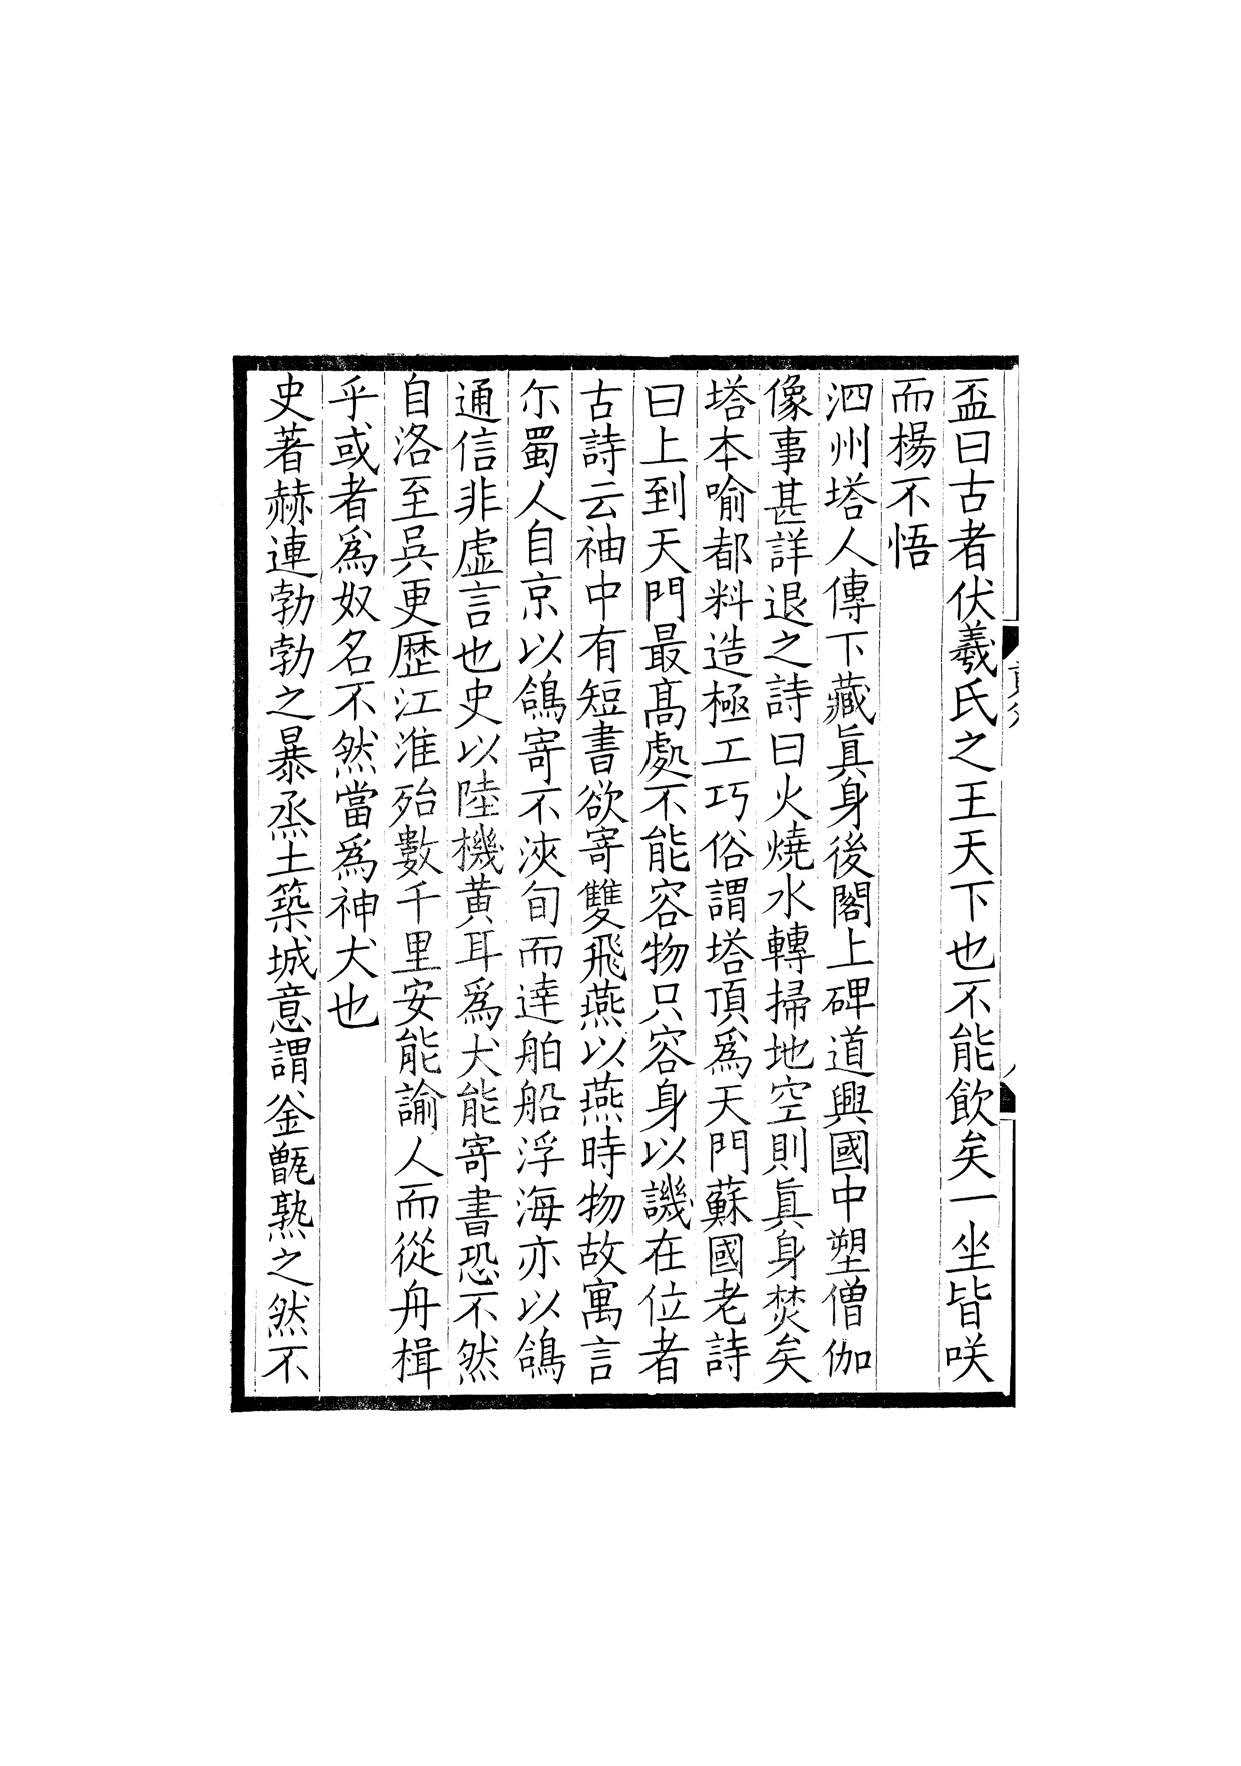 盃曰古者伏羲氏之王天下也不能飲矣一坐皆咲
而楊不悟
泗州塔人傳下藏眞身後閣上碑道興國中塑僧伽
像事甚詳退之詩曰火燒水轉掃地空則眞身焚矣
塔本喻都料造極工巧俗謂塔頂爲天門蘇國老詩
曰上到天門最髙處不能容物只容身以譏在位者
古詩云袖中有短書欲寄雙飛燕以燕時物故寓言
尒蜀人自京以鴿寄不浹旬而達舶船浮海亦以鴿
通信非虛言也史以陸機黃耳爲犬能寄書恐不然
自洛至吳更歷江淮殆數千里安能諭人而從舟楫
乎或者爲奴名不然當爲神犬也
史著赫連勃勃之暴烝土築城意謂釜甑熟之然不